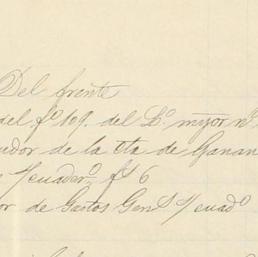 Del frente
del fº 109. del Lº mayor nº
udor de la cta de Ganan
s/cuadrº fs 6
or de Gastos Genˢ s/cuadº